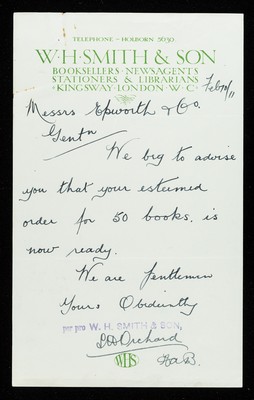 TELEPHONE · HOLBORN 5630.
W·H·SMITH & SON
BOOKSELLERS · NEWSAGENTS
STATIONERS & LIBRARIANS
KINGSWAY · LONDON · W·C·
Messrs Epworth & Co.
Gentn
We beg to advise
you that your esteemed
order for 50 books. is
now ready.
We are Gentlemen
Yours Obediently
per pro W. H. SMITH & SON,
Orchard
WHS